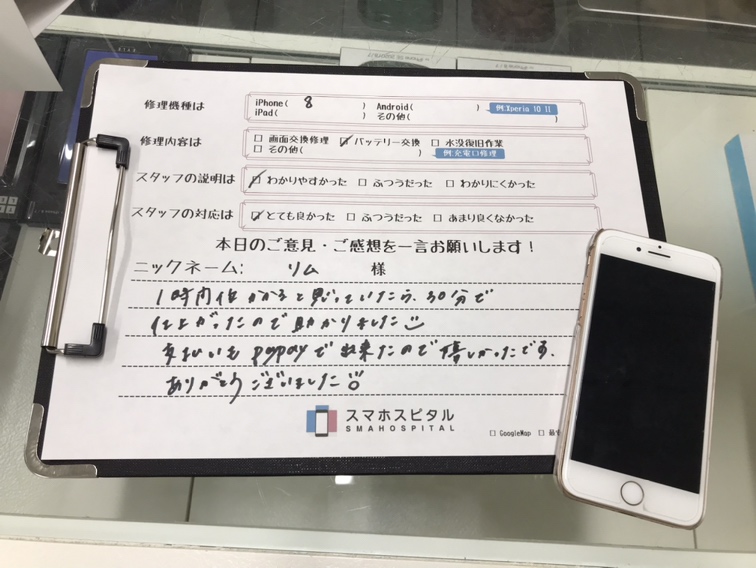 修理機種は
iPhone( 8 ) Android( ) 例:Xperia 10 II
iPad( ) その他( )
修理内容は
□ 画面交換修理 ☑ バッテリー交換 □ 水没復旧作業
□ その他( ) 例:充電口修理
スタッフの説明は ☑ わかりやすかった □ ふつうだった □ わかりにくかった
スタッフの対応は ☑ とても良かった □ ふつうだった □ あまり良くなかった
本日のご意見・ご感想を一言お願いします!
ニックネーム: リム 様
1時間位かかると思っていたら、30分で
仕上がったので助かりました
支払いもpaypayで出来たので嬉しかったです。
ありがとうございました
スマホスピタル
SMAHOSPITAL
□ GoogleMap □